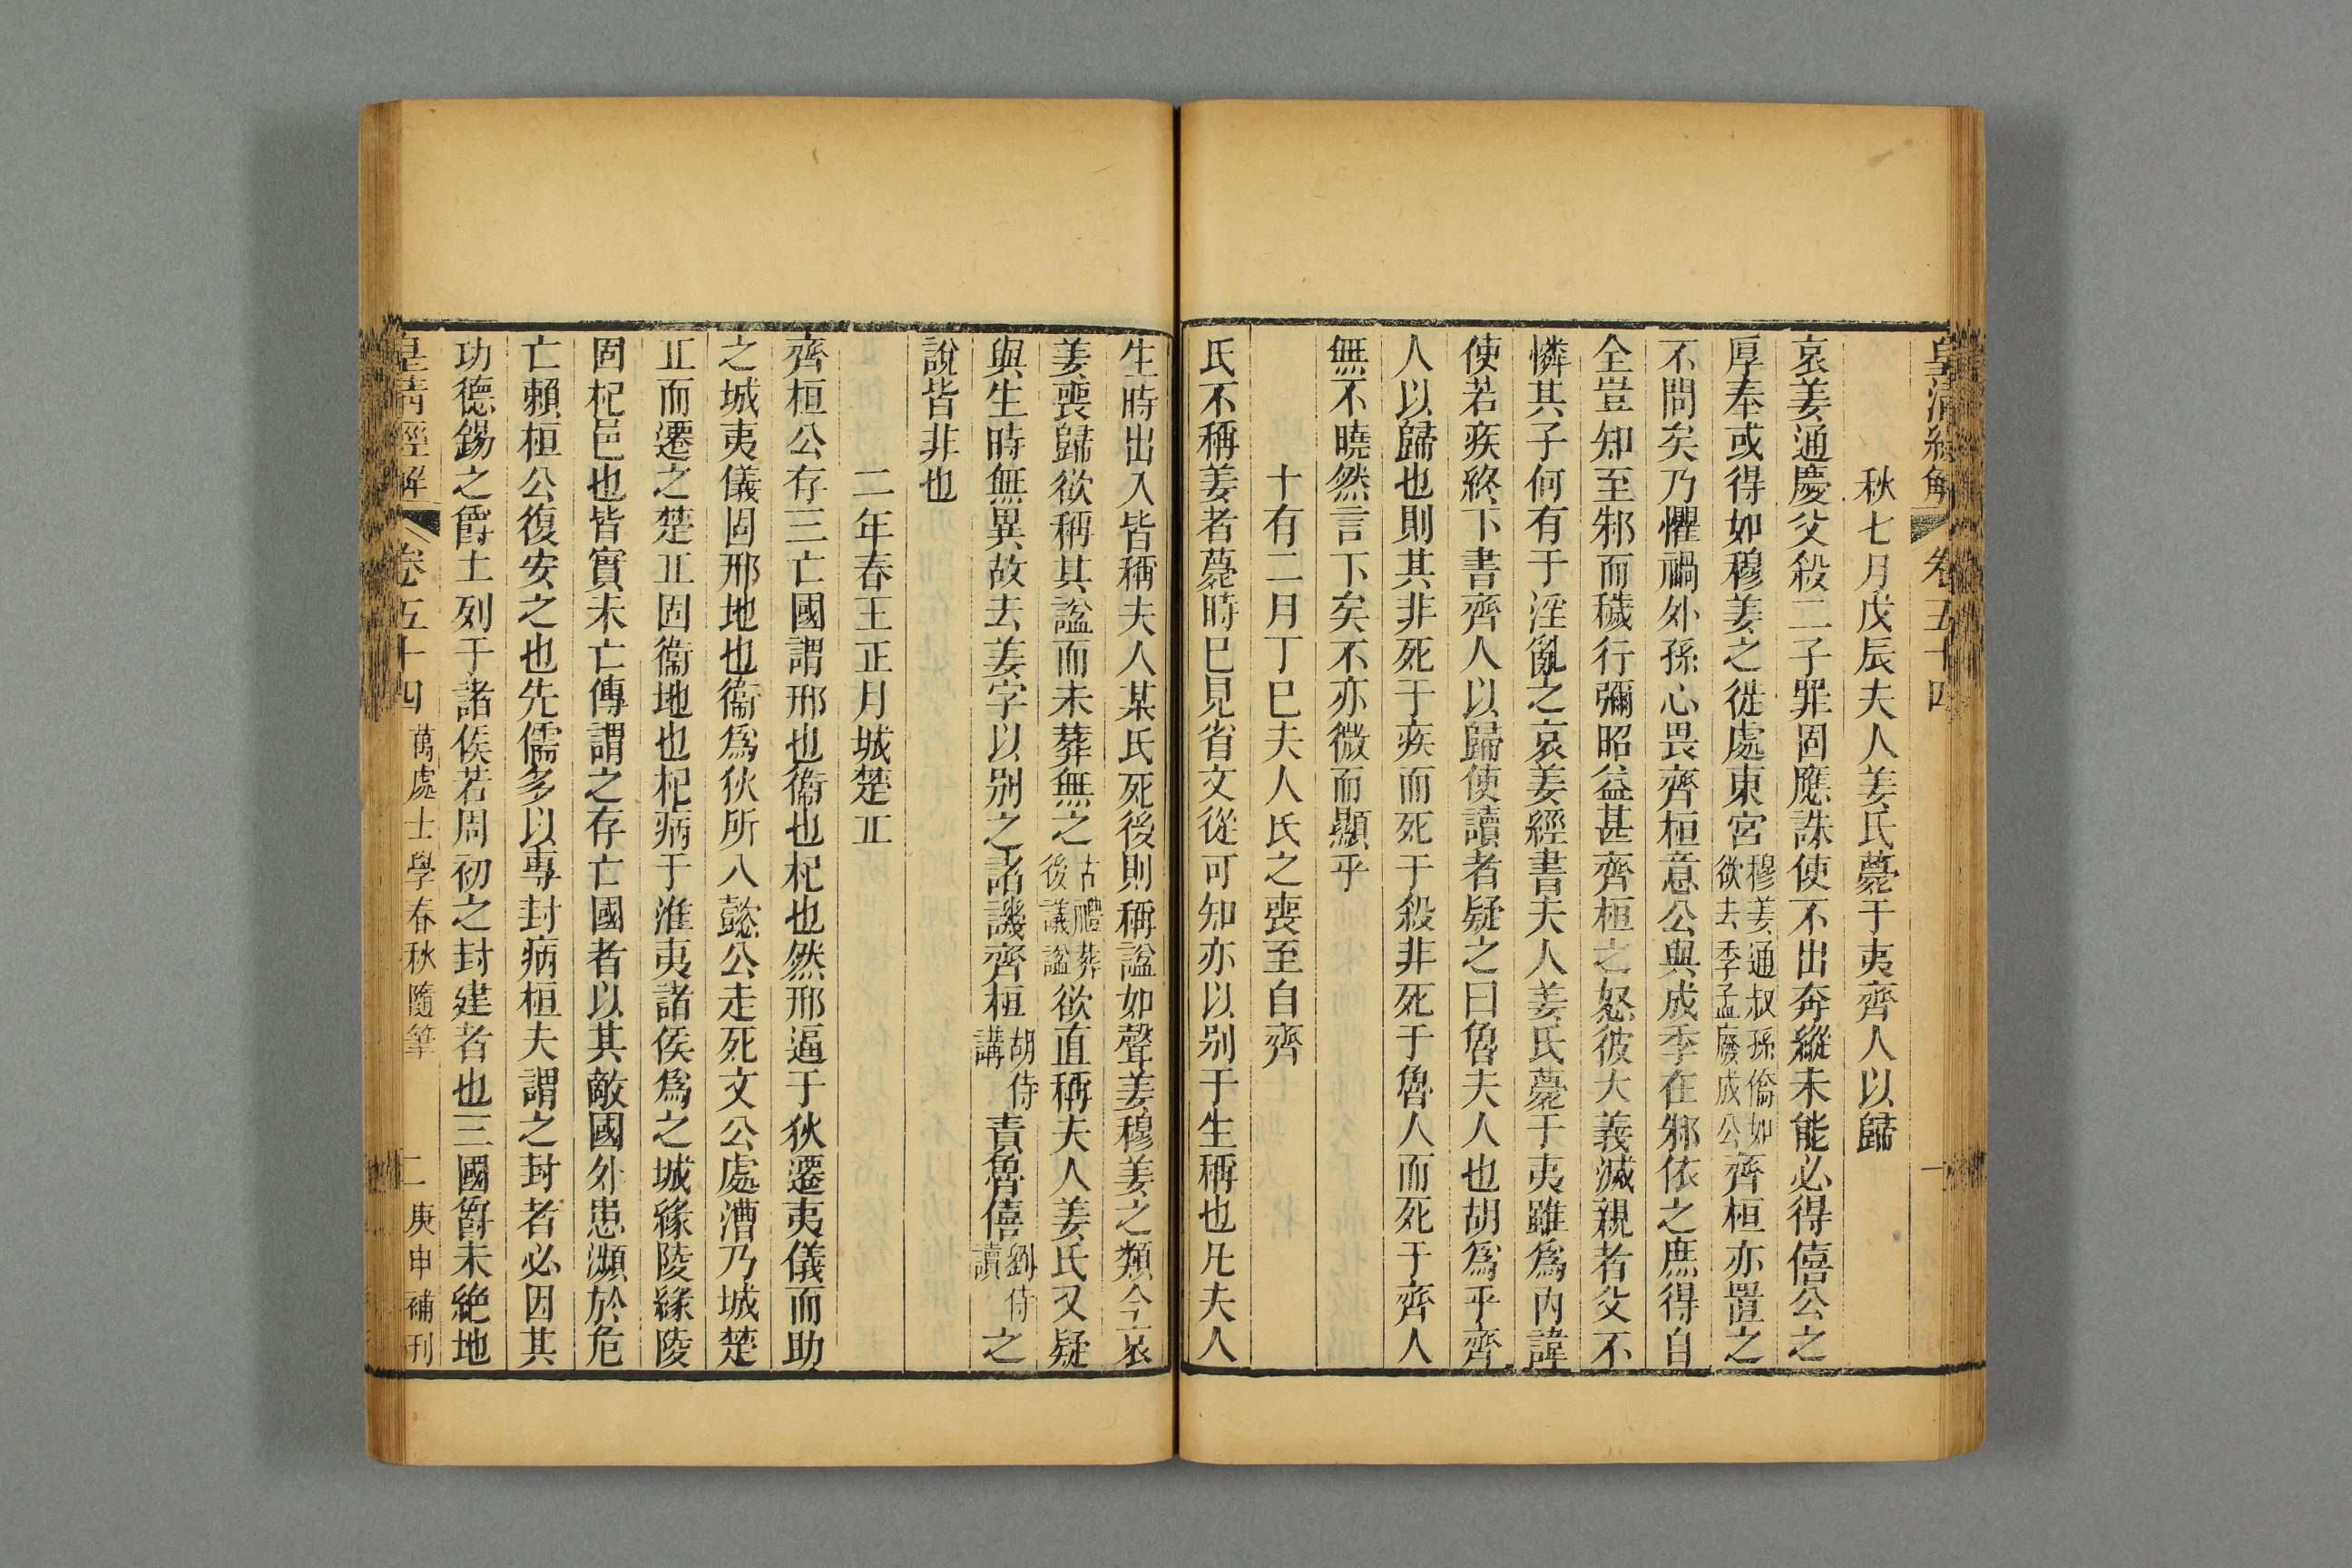 皇清經解 卷五十四 一
秋七月戊辰夫人姜氏薨于夷齊人以歸
哀姜通慶父殺二子罪固應誅使不出奔縱未能必得僖公之
厚奉或得如穆姜之徙處東宮穆姜通叔孫僑如欲去季孟廢成公齊桓亦置之
不問矣乃懼禍外孫心畏齊桓意公與成季在邾依之庶得自
全豈知至邾而穢行彌昭益甚齊桓之怒彼大義滅親者父不
憐其子何有于淫亂之哀姜經書夫人姜氏薨于夷雖爲內諱
使若疾終下書齊人以歸使讀者疑之曰魯夫人也胡爲乎齊
人以歸也則其非死于疾而死于殺非死于魯人而死于齊人
無不曉然言下矣不亦微而顯乎
十有二月丁巳夫人氏之喪至自齊
氏不稱姜者薨時已見省文從可知亦以别于生稱也凡夫人
生時出入皆稱夫人某氏死後則稱諡如聲姜穆姜之類今哀
姜喪歸欲稱其諡而未葬無之古禮葬後議諡欲直稱夫人姜氏又疑
與生時無異故去姜字以别之諸譏齊桓胡侍講責魯僖劉侍讀之
說皆非也
二年春王正月城楚丘
齊桓公存三亡國謂邢也衞也杞也然邢逼于狄遷夷儀而助
之城夷儀固邢地也衞爲狄所入懿公走死文公處漕乃城楚
丘而遷之楚丘固衞地也杞病于淮夷諸侯爲之城緣陵緣陵
固杞邑也皆實未亡傳謂之存亡國者以其敵國外患瀕於危
亡賴桓公復安之也先儒多以專封病桓夫謂之封者必因其
功德錫之爵土列于諸侯若周初之封建者也三國爵未絶地
皇清經解 卷五十四 萬處士學春秋隨筆 二 庚申補刊